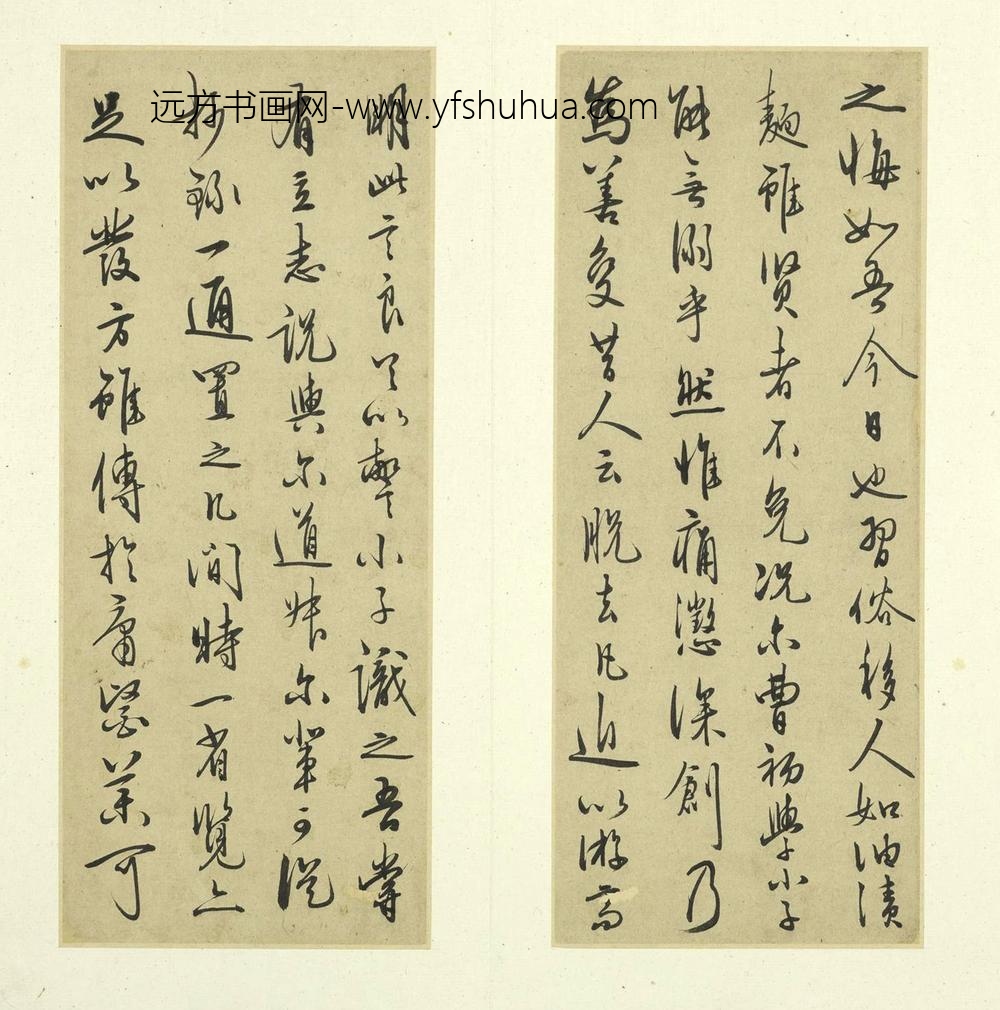 远方书画网-www.yfshuhua.com
之悔如吾今日也習俗移人如油漬
麵雖賢者不免況尔曹初學小子
能無溺乎然惟痛懲深創乃
為善變昔人云脱去凡近以游高
明此言良足以警小子識之吾嘗
有立志說與尔道叔尔輩可從
抄錄一通置之几間時一省覽亦
足以發方雖傳於庸醫藥可